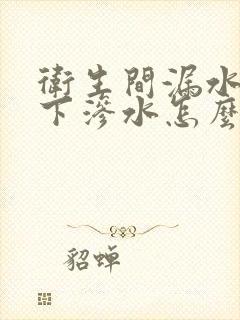 衛生間漏水
下滲水怎麼
貂蝉